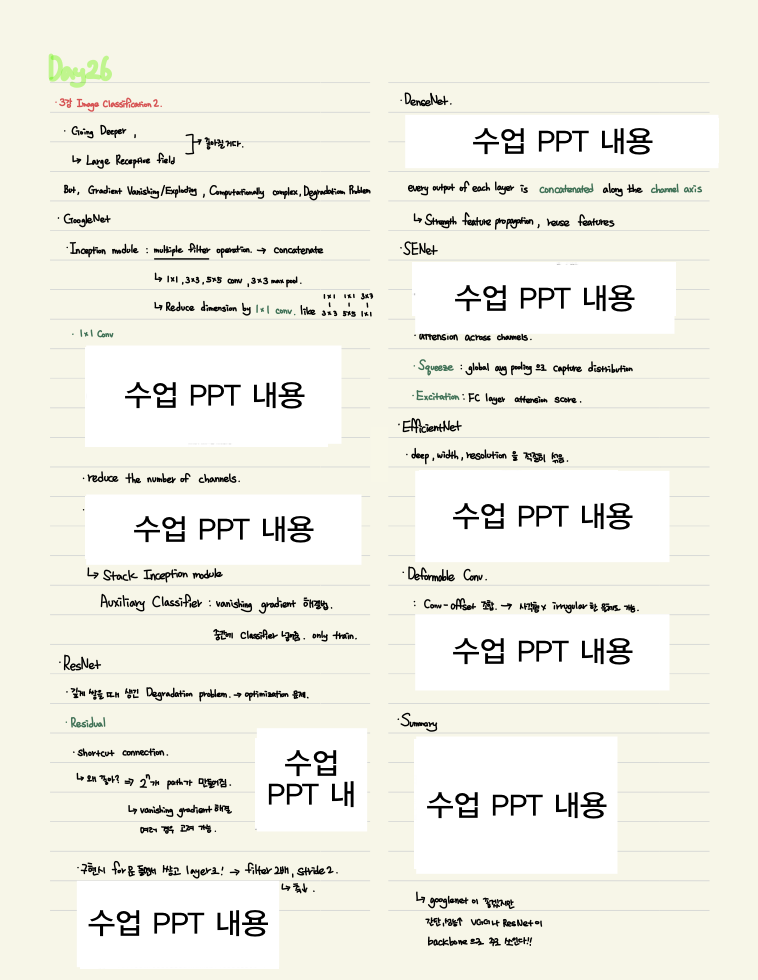 Day26
· 3강 Image Classification 2.
· Going Deeper,
↳ Large Receptive field
→ 좋아질거다.
But, Gradient Vanishing/Exploding, Computationally complex, Degradation Problem
· GoogleNet
· Inception module : multiple filter operation. → concatenate
↳ 1×1, 3×3, 5×5 conv, 3×3 max pool.
↳ Reduce dimension by 1×1 conv. like
1×1 1×1 3×3
3×3 5×5 1×1
· 1×1 Conv
수업 PPT 내용
· reduce the number of channels.
수업 PPT 내용
↳ Stack Inception module
Auxiliary Classifier : vanishing gradient 해결법.
중간에 Classifier 넣어줌. only train.
· ResNet
· 깊게 쌓을 때 생긴 Degradation problem. → optimization 문제.
· Residual
· Shortcut connection.
↳ 왜 좋아? ⇒ 2ⁿ개 path가 만들어짐.
↳ vanishing gradient 해결
여러 경우 고려 가능.
수업
PPT 내
· 구현시 for문 돌면서 쌓고 layer로! → filter 2배, stride 2.
↳
수업 PPT 내용
· DenseNet.
수업 PPT 내용
every output of each layer is concatenated along the channel axis
↳ Strength feature propagation, reuse features
· SENet
수업 PPT 내용
· attension across channels.
· Squeeze : global avg pooling 으로 capture distribution
· Excitation : FC layer attension score.
· EfficientNet
· deep, width, resolution 을 적절히 섞음.
수업 PPT 내용
· Deformable Conv.
: Conv-offset 조합. → 사각형× irregular 한 형태도 가능.
수업 PPT 내용
· Summary
수업 PPT 내용
↳ googlenet 이 좋겠지만
간단, 성능↑ VGG이나 ResNet 이
backbone 으로 주로 쓰인다!!